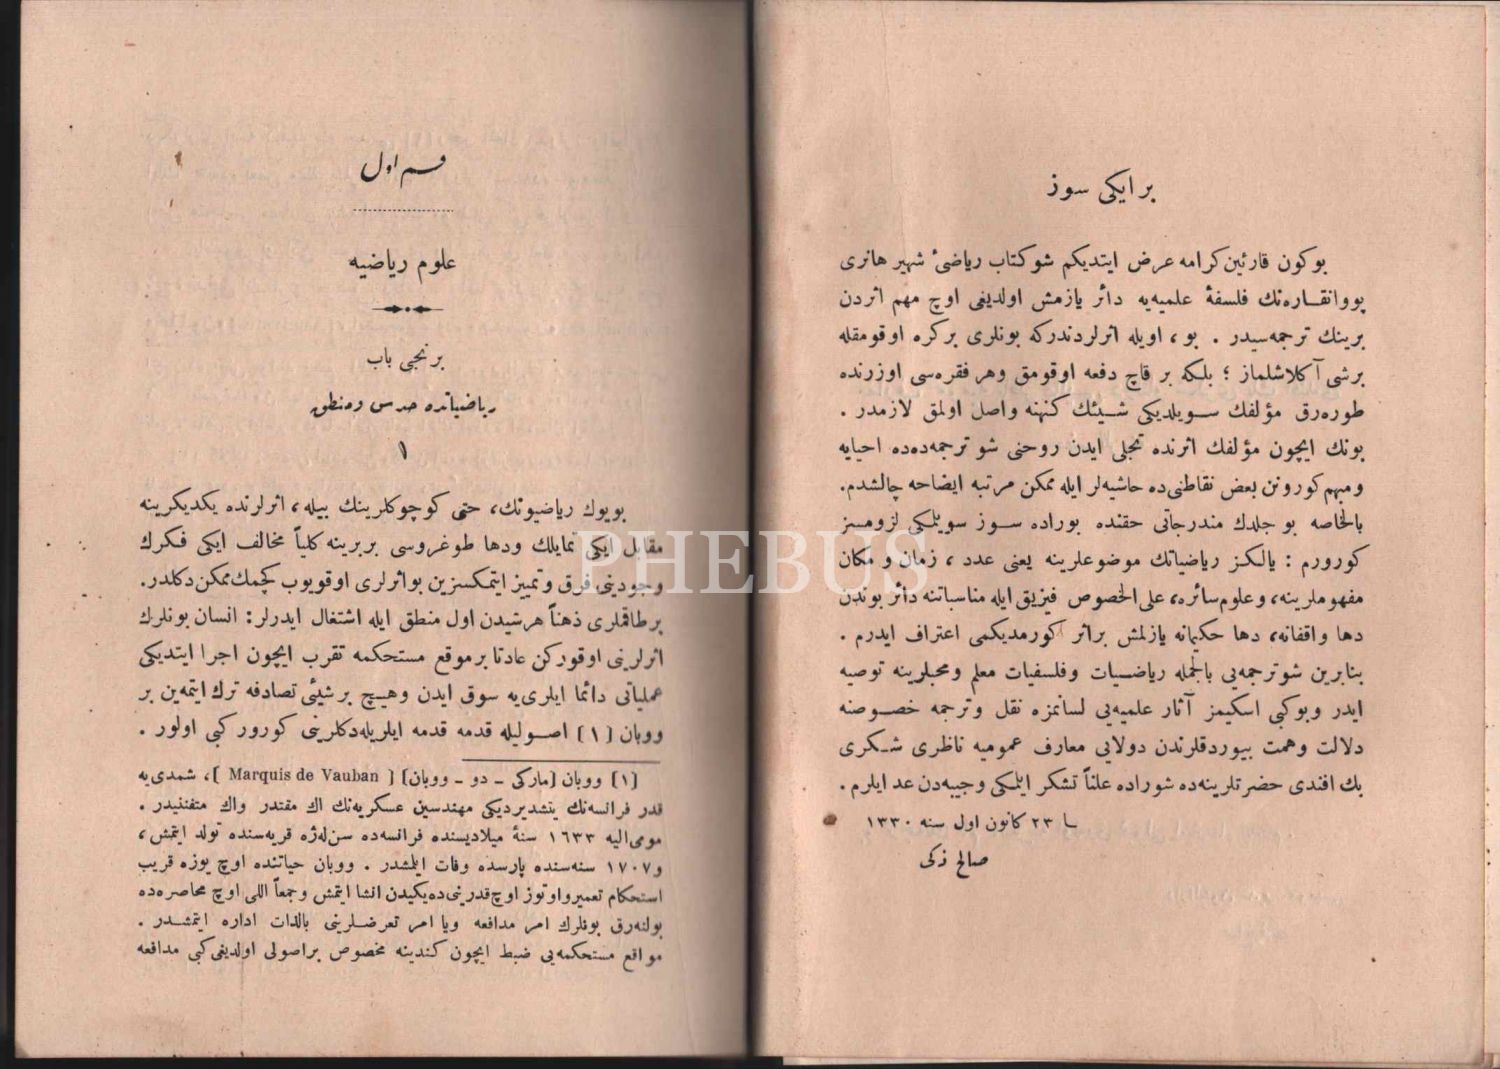 بر ایکی سوز
بوکون قارئین کرامه عرض ایتدیکم شو کتاب ریاضیٔ شهیر هانری
پووانقاره‌نك فلسفهٔ علمیه‌یه دائر یازمش اولدیغی اوچ مهم اثردن
برینك ترجمه‌سیدر . بو ، اویله اثرلردندرکه بونلری برکره اوقومقله
برشی آکلاشلماز ؛ بلکه بر قاچ دفعه اوقومق وهر فقره‌سی اوزرنده
طوره‌رق مؤلفك سویلدیکی شیئك کنهنه واصل اولمق لازمدر .
بونك ایچون مؤلفك اثرنده تجلی ایدن روحنی شو ترجمه‌ده‌ده احیایه
ومبهم کورونن بعض نقاطنی‌ده حاشیه‌لر ایله ممکن مرتبه ایضاحه چالشدم.
بالخاصه بو جلدك مندرجاتی حقنده بوراده سوز سویلمکی لزومسز
کورورم : یالکز ریاضیاتك موضوعلرینه یعنی عدد ، زمان و مکان
مفهوملرینه، وعلوم سائره، علی‌الخصوص فیزیق ایله مناسباتنه دائر بوندن
دها واقفانه، دها حکیمانه یازلمش براثر کورمدیکمی اعتراف ایدرم .
بنابرین شوترجمه‌یی بالجمله ریاضیات وفلسفیات معلم ومحبلرینه توصیه
ایدر وبوکبی اسکیمز آثار علمیه‌یی لسانمزه نقل وترجمه خصوصنه
دلالت وهمت بیوردقلرندن دولایی معارف عمومیه ناظری شکری
بك افندی حضرتلرینه‌ده شوراده علناً تشکر ایلمکی وجیبه‌دن عد ایلرم .
٢٣ کانون اول سنه ١٣٣٠
صالح ذکی
قسم اول
علوم ریاضیه
برنجی باب
ریاضیاتده حدس ومنطق
١
بویوك ریاضیونك، حتی کوچوکلرینك بیله، اثرلرنده یکدیکرینه
مقابل ایکی تمایلك ودها طوغروسی بربرینه کلیاً مخالف ایکی فکرك
وجودینی فرق وتمییز ایتمکسزین بواثرلری اوقویوب کچمك ممکن دکلدر.
برطاقملری ذهناً هرشیدن اول منطق ایله اشتغال ایدرلر: انسان بونلرك
اثرلرینی اوقورکن عادتا برموقع مستحکمه تقرب ایچون اجرا ایتدیکی
عملیاتی دائما ایلری‌یه سوق ایدن وهیچ بر شیئی تصادفه ترك ایتمه‌ین بر
ووبان (١) اصولیله قدمه قدمه ایلریله‌دکلرینی کورور کبی اولور .
(١) ووبان [مارکی ـ دو ـ ووبان] [ Marquis de Vauban ]، شمدی‌یه
قدر فرانسه‌نك یتشدیردیکی مهندسین عسکریه‌نك اك مقتدر واك متفننیدر .
مومی‌الیه ١٦٣٣ سنهٔ میلادیسنده فرانسه‌ده سن‌له‌ژه قریه‌سنده تولد ایتمش ،
و١٧٠٧ سنه‌سنده پارسده وفات ایلمشدر . ووبان حیاتنده اوچ یوزه قریب
استحکام تعمیر واوتوز اوچ قدرینی‌ده یکیدن انشا ایتمش وجمعاً اللی اوچ محاصره‌ده
بولنه‌رق بونلرك امر مدافعه ویا امر تعرضلرینی بالذات اداره ایتمشدر .
مواقع مستحکمه‌یی ضبط ایچون کندینه مخصوص براصولی اولدیغی کبی مدافعه
PHEBUS